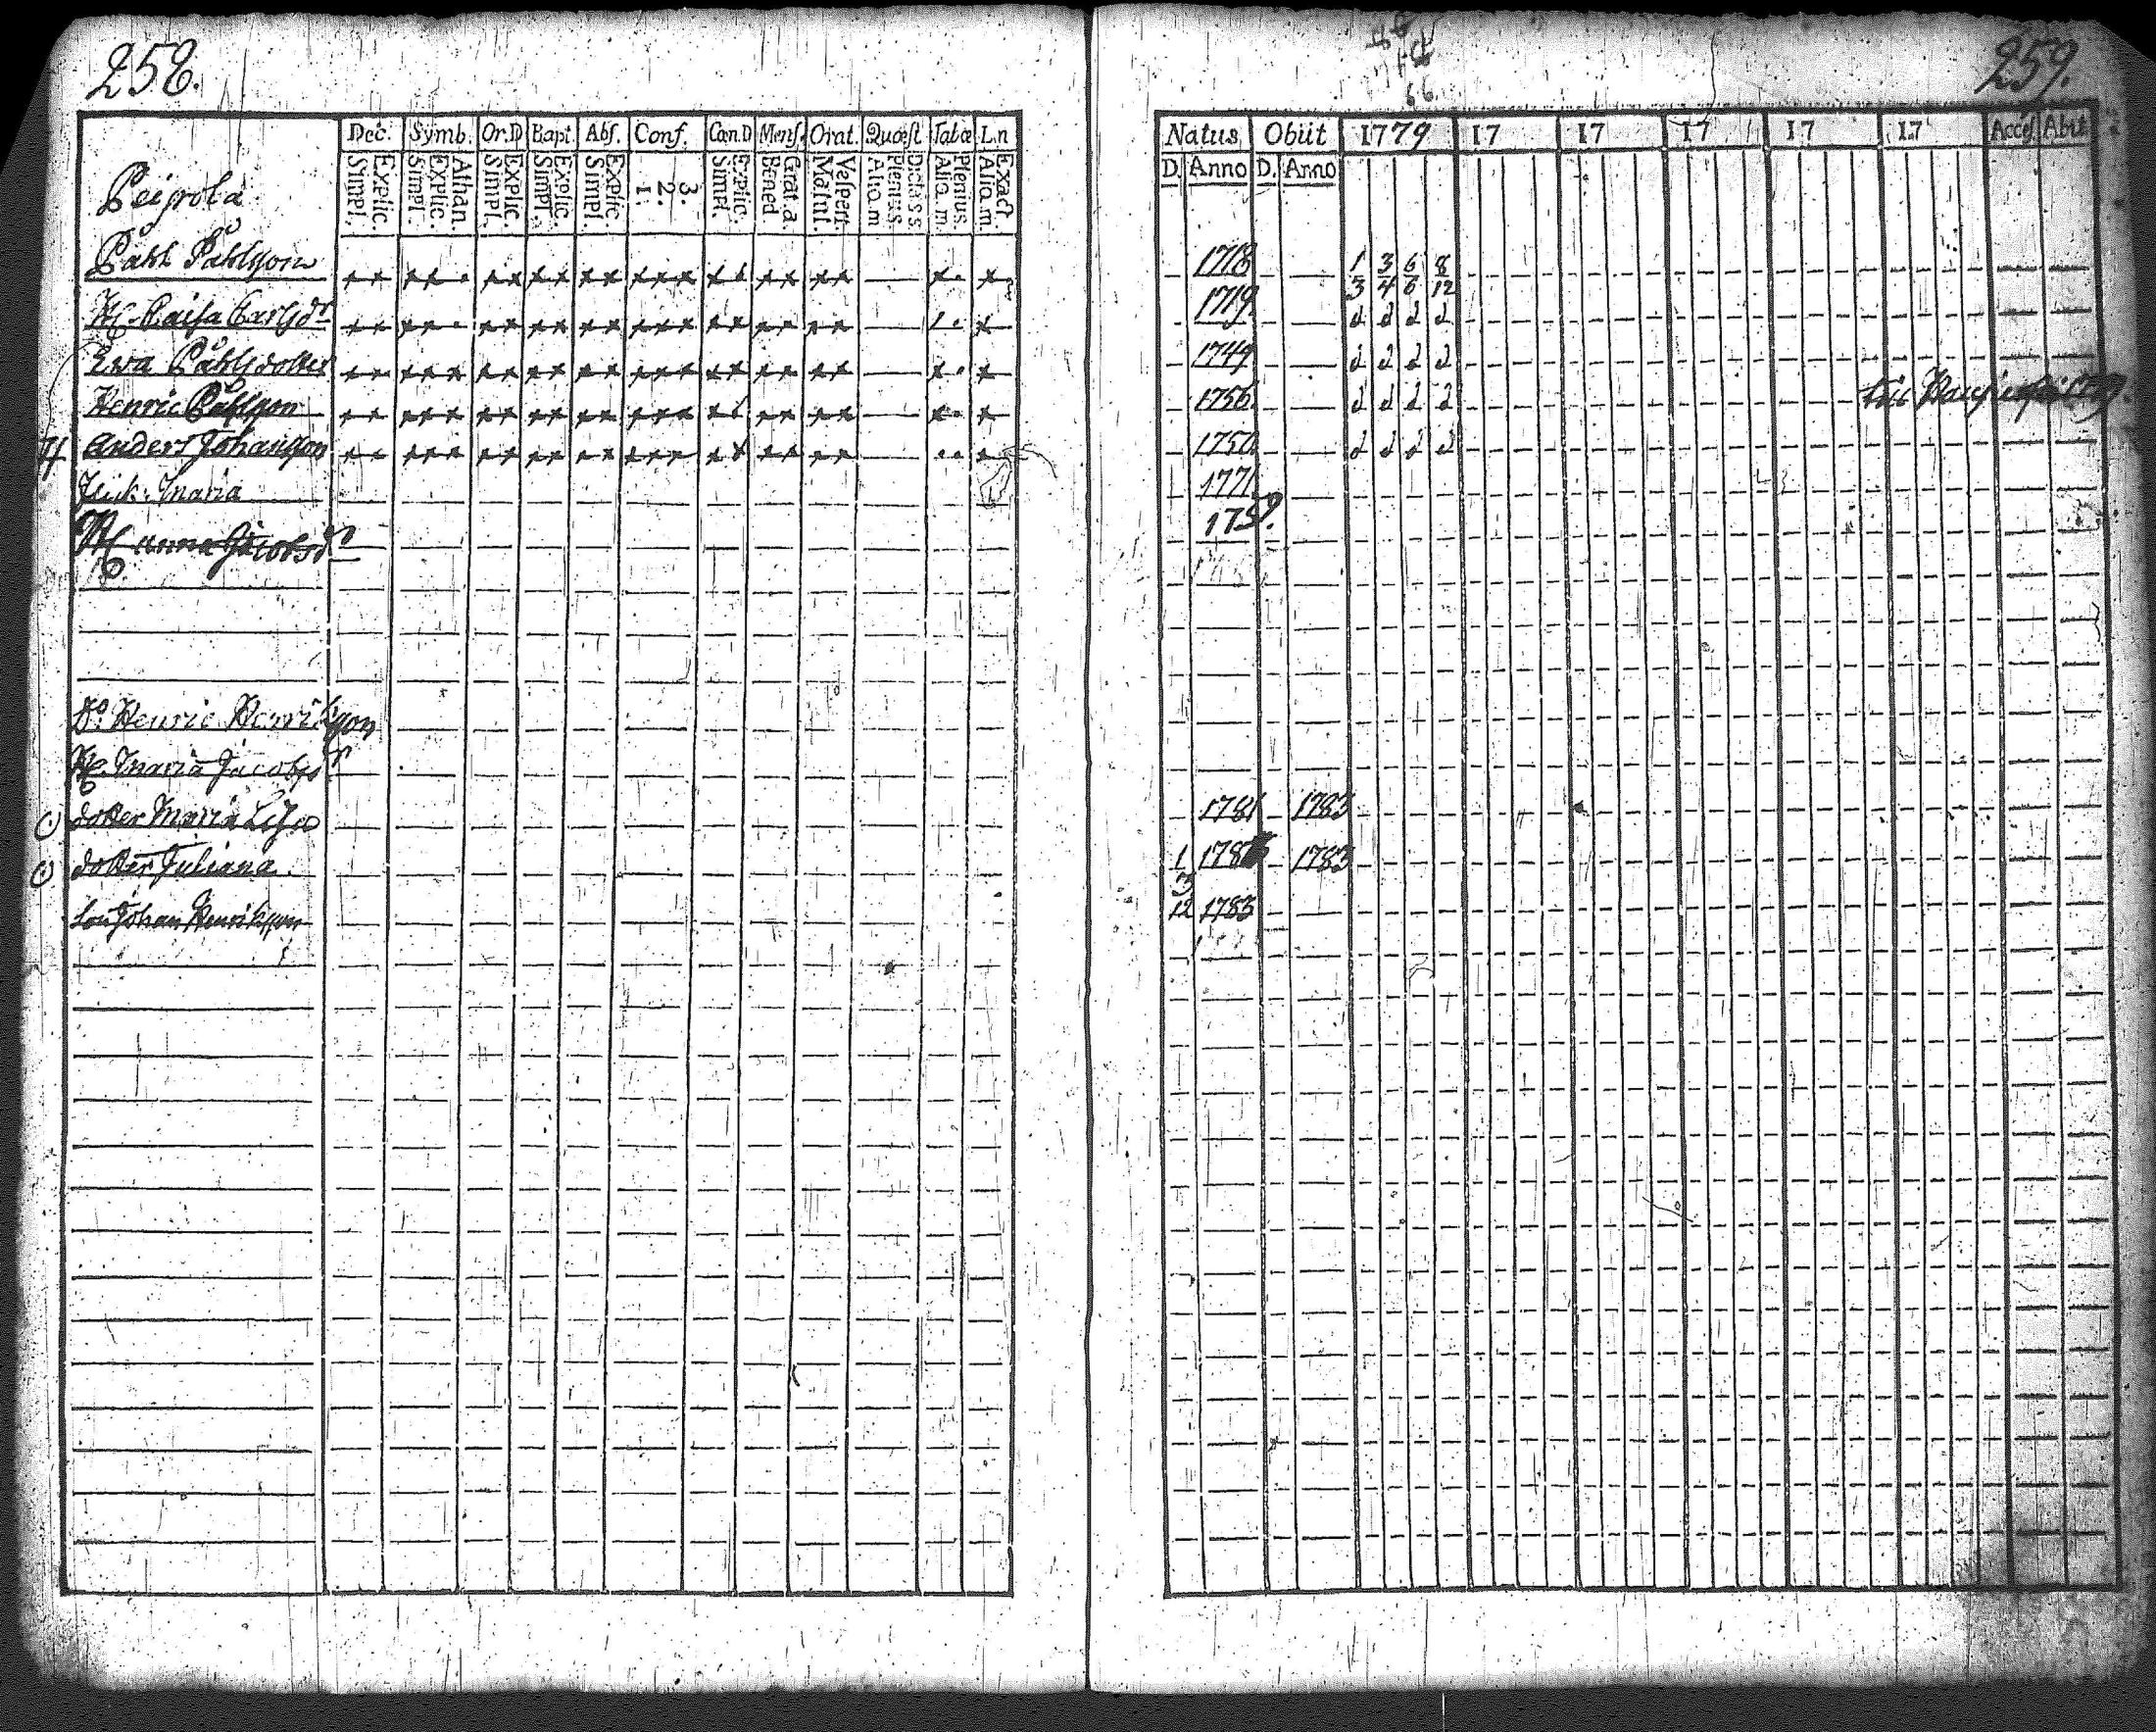 258.
Dec. Symb. Or.D Bapt. Abs. Conf. Cœn.D Mens. Orat. Quæst Tabæ L.n
Explic. Simpl. Athan. Explic. Simpl. Explic. Simpl. Explic. Simpl. Explic. Simpl. 3. 2. 1. Explic. Simpl. Grat. a Bened Vespert. Matut. Plenius Aliq. m Plenius. Aliq. m. Exact Aliq. m.
Peipola
Påhl Påhlsson
H. Caisa Carlsdr
Ewa Påhlsdotter
Henric Påhlsson
Anders Johansson
Flick. Maria
H anna Jacobsdr
S: Henric Henriksson
H. Maria Jacobsdr
dotter Maria Lisa
dotter Juliana.
Son Johan Henriksson
259.
66
Natus Obiit 1779 17 17 17 17 17 Acces. Abit
D. Anno D. Anno
1718 1/3 3/4 6/6 8/12
1719. d d d d
1749 d d d d
1756. d d d d till
1750. d d d d
1771
1759.
1781 1783
1 1783
3
12 1783